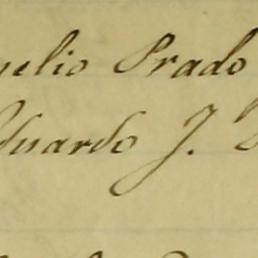 elio Prado
duardo J.